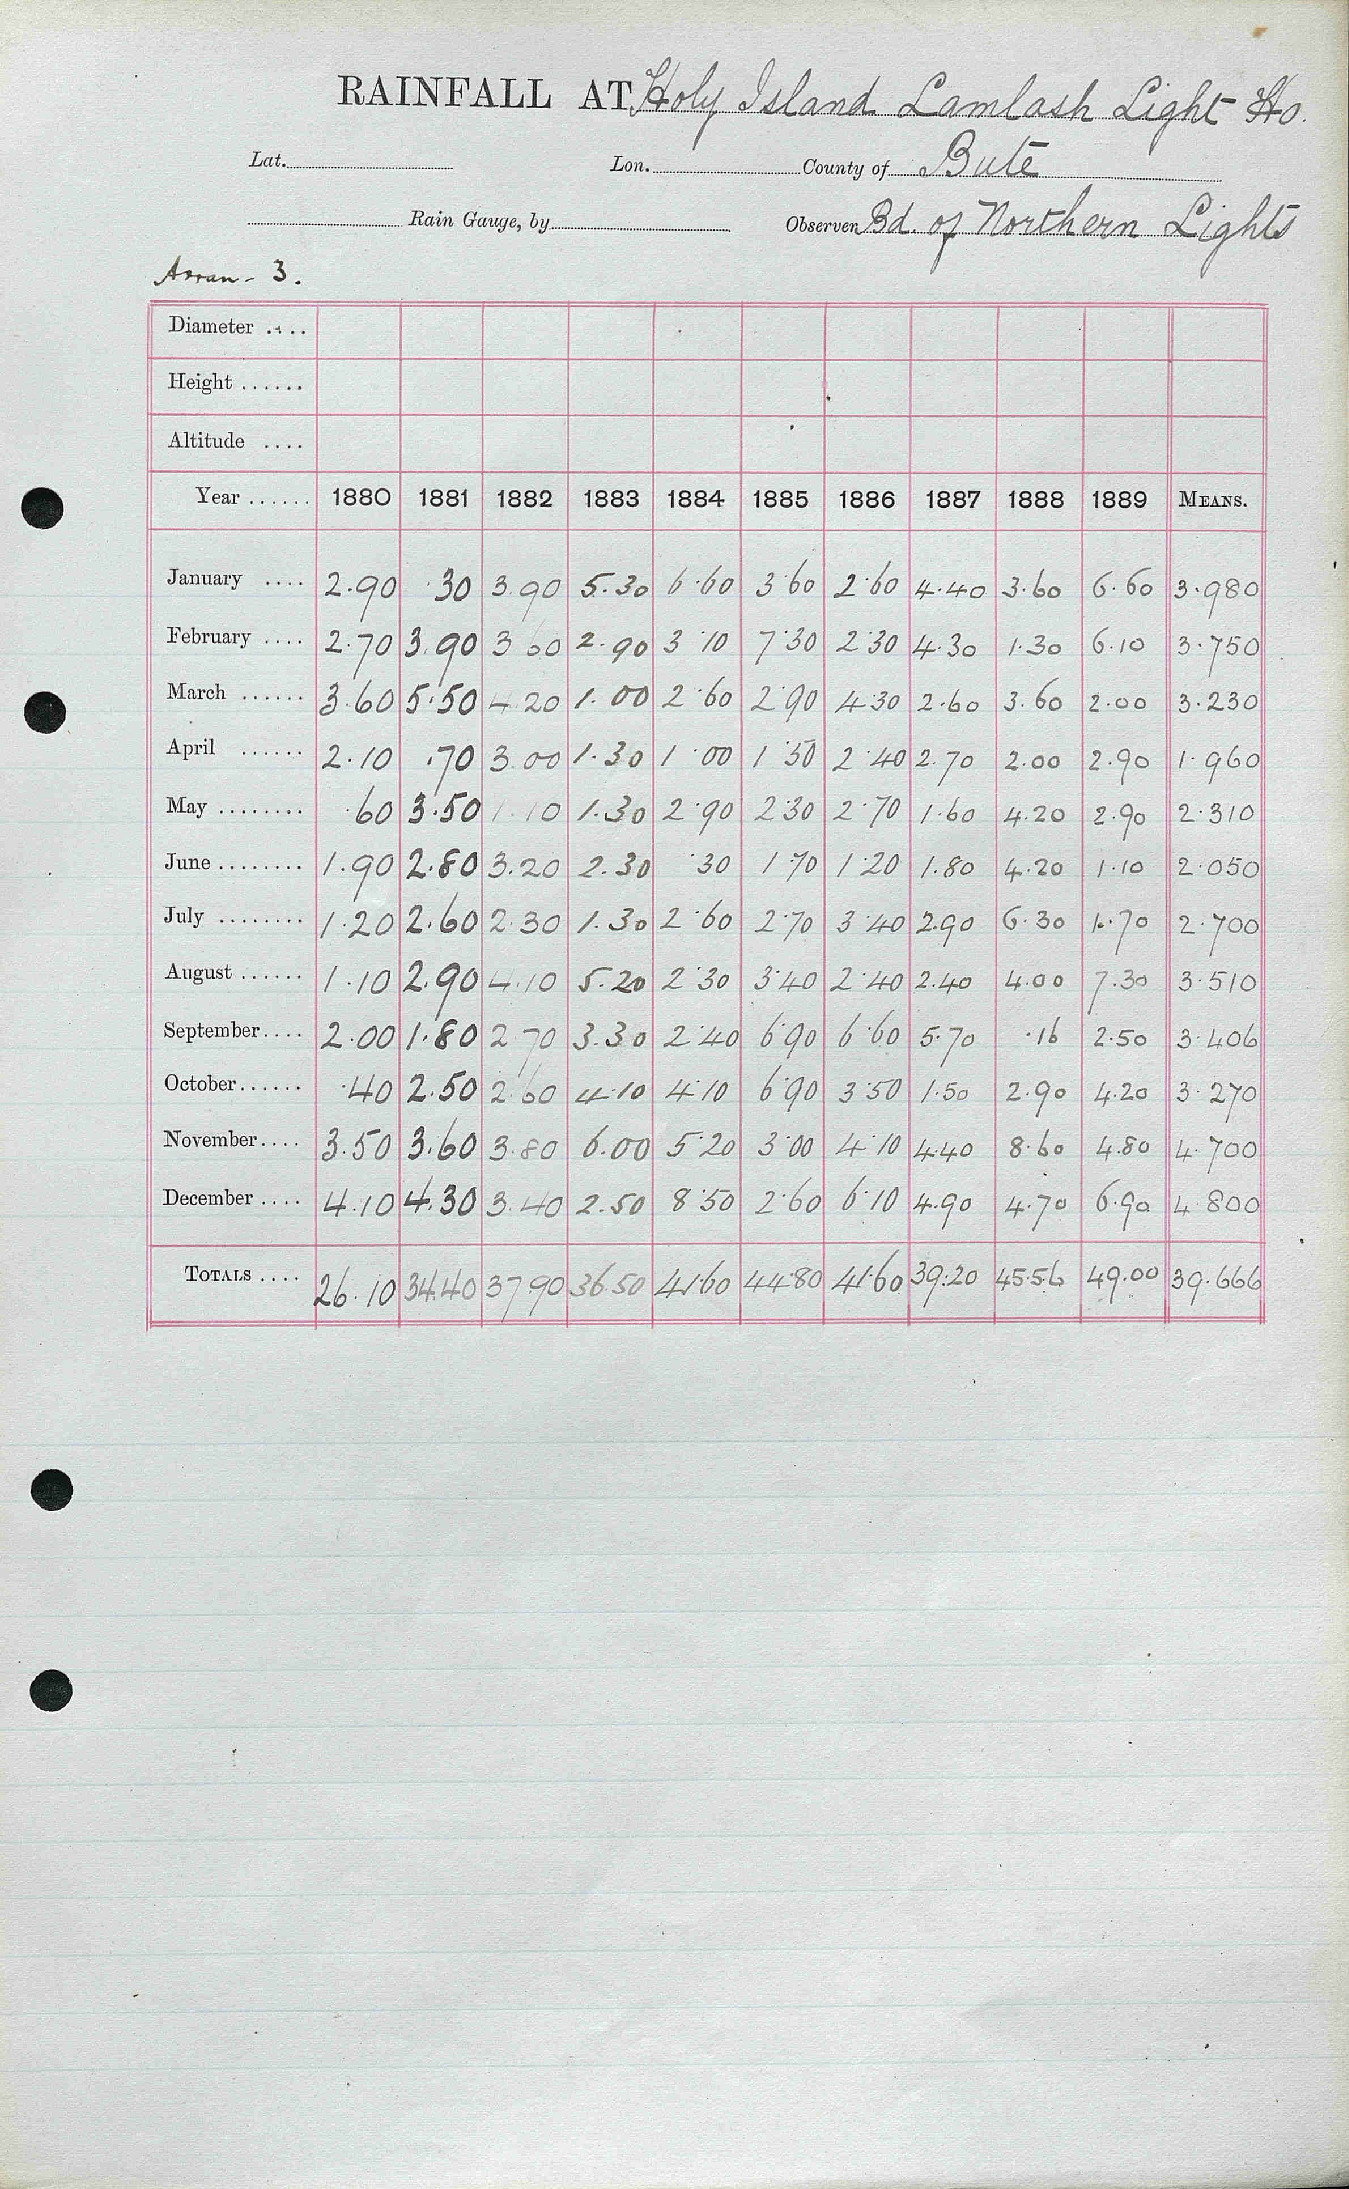 RAINFALL AT Holy Island Lamlash Light Ho.
Lat. Lon. County of Bute
Rain Gauge, by Observer Bd. of Northern Lights
Arran - 3.
Diameter ....
Height ......
Altitude ....
Year ...... 1880 1881 1882 1883 1884 1885 1886 1887 1888 1889 MEANS.
January .... 2.90 .30 3.90 5.30 6.60 3.60 2.60 4.40 3.60 6.60 3.980
February .... 2.70 3.90 3.60 2.90 3.10 7.30 2.30 4.30 1.30 6.10 3.750
March ...... 3.60 5.50 4.20 1.00 2.60 2.90 4.30 2.60 3.60 2.00 3.230
April ...... 2.10 .70 3.00 1.30 1.00 1.50 2.40 2.70 2.00 2.90 1.960
May ........ .60 3.50 1.10 1.30 2.90 2.30 2.70 1.60 4.20 2.90 2.310
June ........ 1.90 2.80 3.20 2.30 .30 1.70 1.20 1.80 4.20 1.10 2.050
July ........ 1.20 2.60 2.30 1.30 2.60 2.70 3.40 2.90 6.30 1.70 2.700
August ...... 1.10 2.90 4.10 5.20 2.30 3.40 2.40 2.40 4.00 7.30 3.510
September .... 2.00 1.80 2.70 3.30 2.40 6.90 6.60 5.70 .16 2.50 3.406
October ...... .40 2.50 2.60 4.10 4.10 6.90 3.50 1.50 2.90 4.20 3.270
November .... 3.50 3.60 3.80 6.00 5.20 3.00 4.10 4.40 8.60 4.80 4.700
December .... 4.10 4.30 3.40 2.50 8.50 2.60 6.10 4.90 4.70 6.90 4.800
TOTALS .... 26.10 34.40 37.90 36.50 41.60 44.80 41.60 39.20 45.56 49.00 39.666